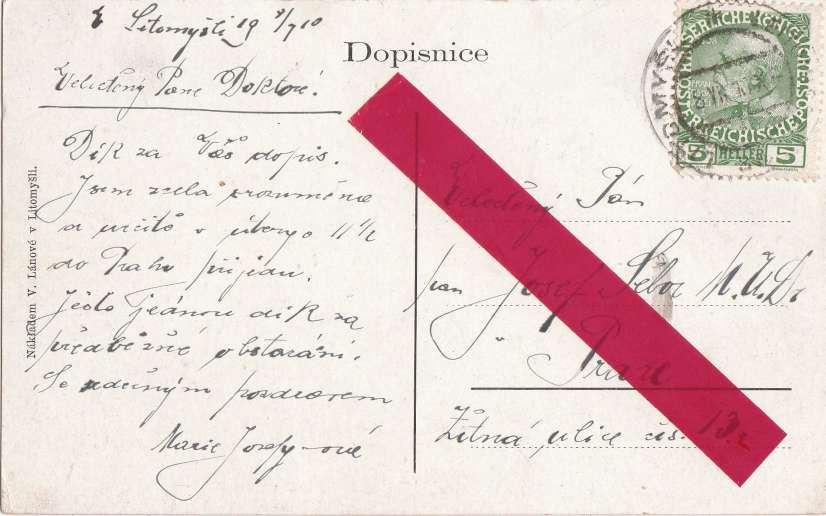 Litomyšli 19 9/7 10
Dopisnice
Velectěný Pane Doktore!
Dík za Váš dopis.
Jsem zcela srozuměna
a určitě v úterý o 11 1/2
do Prahy přijedu.
Ještě jednou dík za
předběžné obstarání.
Se srdečným pozdravem
Marie Josefy-ové
Nákladem V. Lánové v Litomyšli.
5 HELLER 5
Velectěný Pán
pan Josef Šebor M.U.Dr
v Praze
Žitná ulice čís. 13